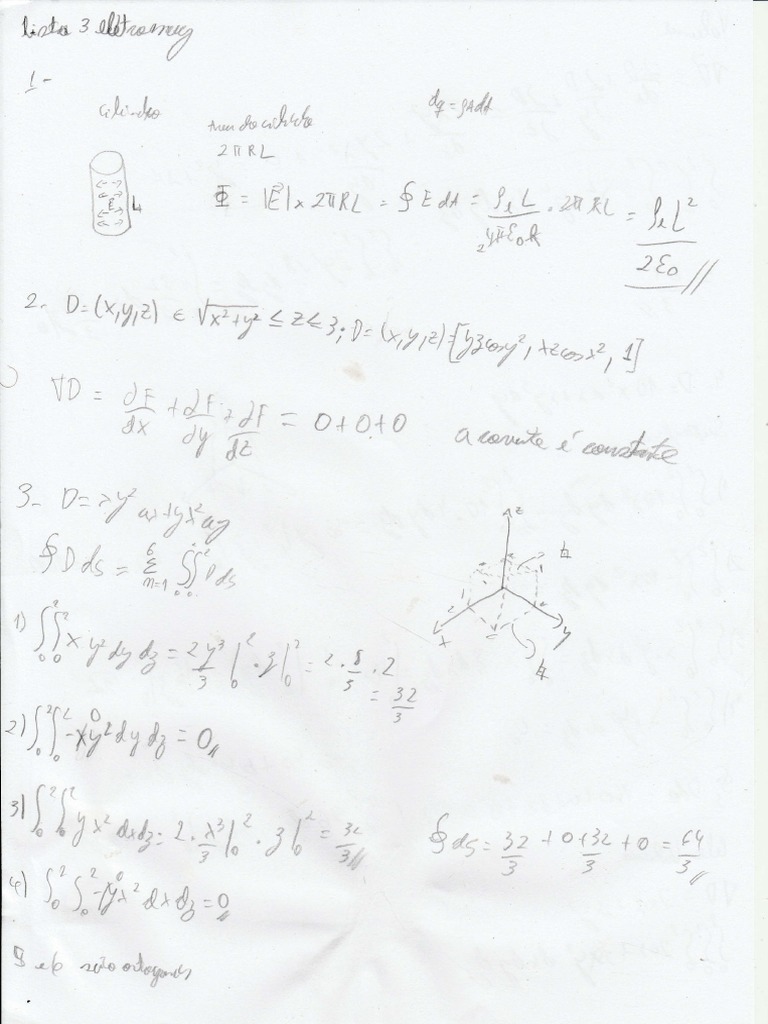 Lista 3 eletromag
1-
cilindro
dq = ρAdl
2πRL
L
E
Φ = |E| x 2πRL = ∮ E dA = ρₗL / 2 4πε₀R . 2πRL = ρₗL² / 2ε₀ //
2- D=(x,y,z) ∈ √x²+y² ≤ z ≤ 3; D=(x,y,z)=[yzcosy², xzcosx², 1]
∇D = ∂F/dx + ∂F/dy + ∂F/dz = 0+0+0 a corrente é constante
3- D=xy² ax+yx² ay
∮ D ds = Σ 6 n=1 ∫∫ D ds
z
1
2
x
y
1) ∫₀²∫₀² x y² dy dz = 2y³/3 |₀² . z|₀² = 2.8/3 . 2
= 32/3
2) ∫₀²∫₀² -xy² dy dz = 0//
3) ∫₀²∫₀² yx² dxdz = 2 . x³/3 |₀² . z|₀² = 32/3 // ∮ ds = 32/3 + 0 + 32/3 + 0 = 64/3 //
4) ∫₀²∫₀² -yx² dx dz = 0//
5 e 6 são ortogonais